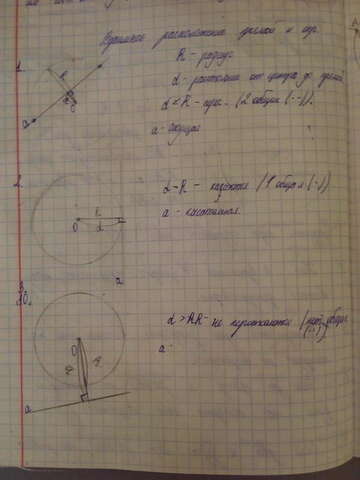 Взаимное расположение прямой и окр.
R - радиус.
d - расстояние от центра до прямой
d < R - пере- (2 общие (·-·)).
a - секущая
1.
R
d
O
a
2.
d - R - касаются (1 общая (·))
a - касательная.
R
O
d
a
3.
d > R - не пересекаются (нет общих
a -
O
R
d
a